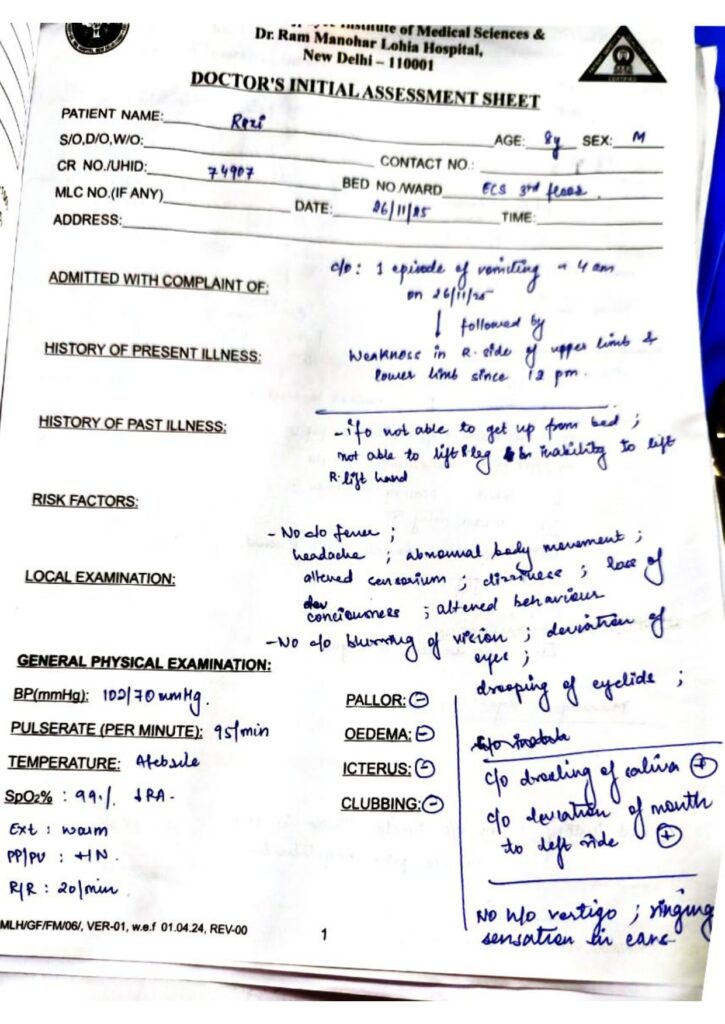 Institute of Medical Sciences &
Dr. Ram Manohar Lohia Hospital,
New Delhi – 110001
DOCTOR'S INITIAL ASSESSMENT SHEET
PATIENT NAME: Rozi
S/O,D/O,W/O: AGE: 8y SEX: M
CR NO./UHID: 74907 CONTACT NO.:
MLC NO.(IF ANY) BED NO./WARD ECS 3rd floor.
DATE: 26/11/25 TIME:
ADDRESS:
ADMITTED WITH COMPLAINT OF: c/o: 1 episode of vomiting 4 am
on 26/11/25
↓ followed by
HISTORY OF PRESENT ILLNESS: Weakness in R. side of upper limb &
lower limb since 12 pm.
HISTORY OF PAST ILLNESS: - i/f/o not able to get up from bed ;
not able to lift R leg inability to lift
R. hand
RISK FACTORS:
- No c/o fever ;
headache ; abnormal body movement ;
LOCAL EXAMINATION: altered censorium ; dizziness ; loss of
conciousness ; altered behaviour
- No c/o blurring of vision ; deviation of
eyes ;
GENERAL PHYSICAL EXAMINATION:
drooping of eyelids ;
BP(mmHg): 102/70 mmHg. PALLOR: ⊖
PULSERATE (PER MINUTE): 95/min OEDEMA: ⊖
TEMPERATURE: Afebrile ICTERUS: ⊖
c/o drooling of saliva ⊕
SpO2% : 99% ↓RA- CLUBBING: ⊖
c/o deviation of mouth
to left side ⊕
Ext : warm
PP/PV : +/N.
R/R : 20/min
No h/o vertigo ; ringing
sensation in ears
MLH/GF/FM/06/, VER-01, w.e.f 01.04.24, REV-00
1